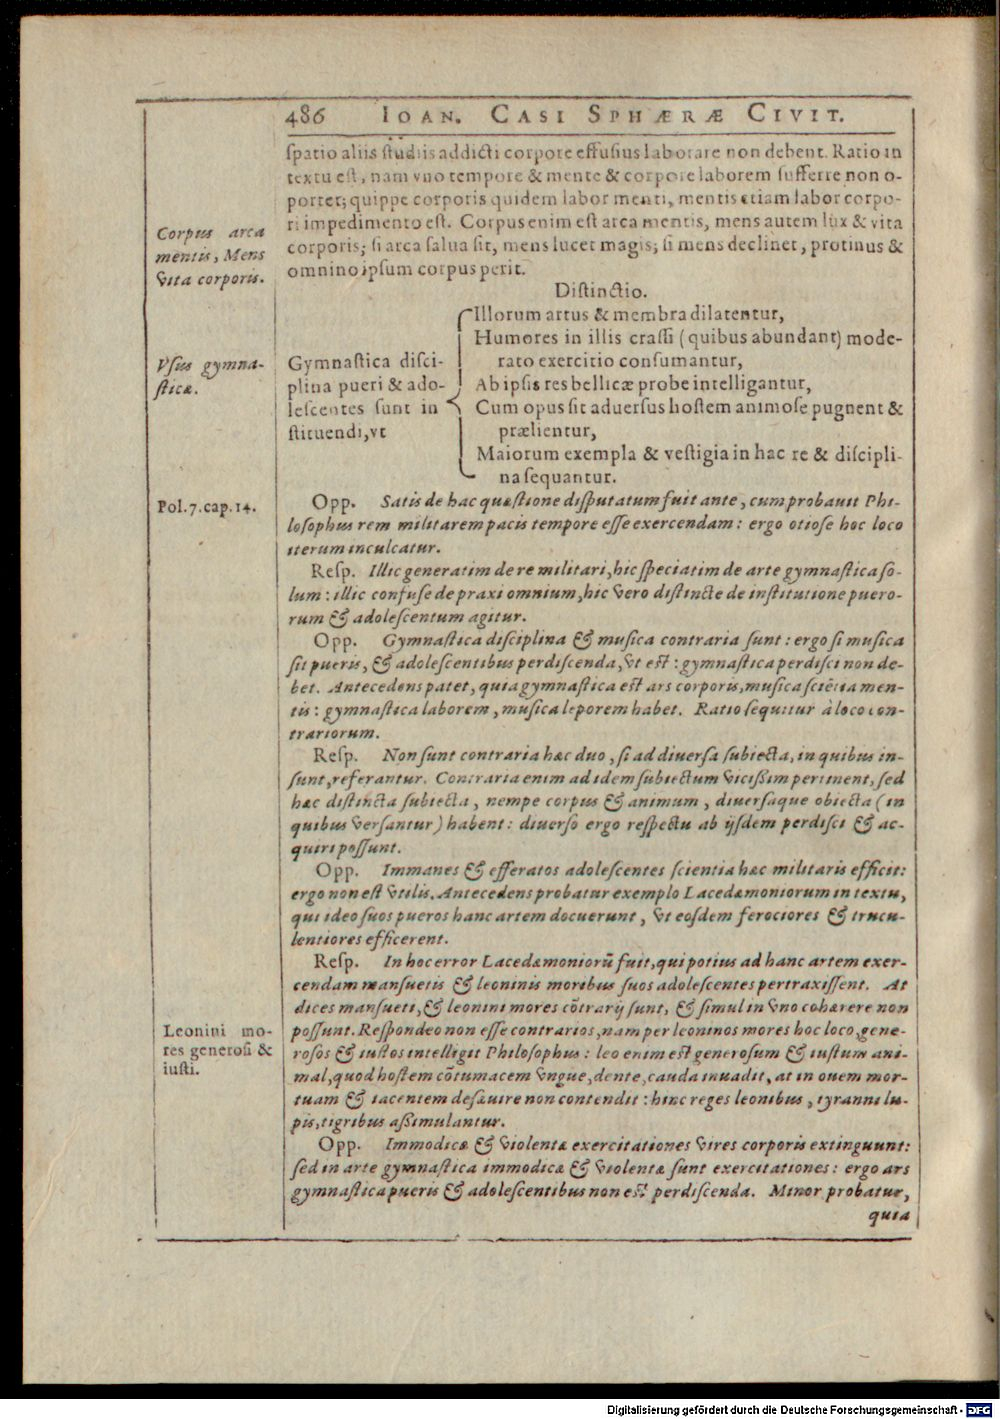 486 IOAN. CASI SPHÆRÆ CIVIT.
ſpatio aliis ſtudiis addicti corpore effuſius laborare non debent. Ratio in
textu eſt, nam vno tempore & mente & corpore laborem ſufferre non o-
portet; quippe corporis quidem labor menti, mentis etiam labor corpo-
ri impedimento eſt. Corpus enim eſt arca mentis, mens autem lux & vita
corporis; ſi arca ſalua ſit, mens lucet magis; ſi mens declinet, protinus &
omnino ipſum corpus perit.
Corpus arca
mentis, Mens
vita corporis.
Diſtinctio.
Vſus gymna-
ſticæ.
Gymnaſtica diſci-
plina pueri & ado-
leſcentes ſunt in
ſtituendi, vt
Illorum artus & membra dilatentur,
Humores in illis craſſi (quibus abundant) mode-
rato exercitio conſumantur,
Ab ipſis res bellicæ probe intelligantur,
Cum opus ſit aduerſus hoſtem animoſe pugnent &
prælientur,
Maiorum exempla & veſtigia in hac re & diſcipli-
na ſequantur.
Pol. 7. cap. 14.
Opp. Satis de hac quæſtione diſputatum fuit ante, cum probauit Phi-
loſophus rem militarem pacis tempore eſſe exercendam: ergo otioſe hoc loco
iterum inculcatur.
Reſp. Illic generatim de re militari, hic ſpeciatim de arte gymnaſtica ſo-
lum: illic confuſe de praxi omnium, hic vero diſtincte de inſtitutione puero-
rum & adoleſcentum agitur.
Opp. Gymnaſtica diſciplina & muſica contraria ſunt: ergo ſi muſica
ſit pueris, & adoleſcentibus perdiſcenda, vt eſt: gymnaſtica perdiſci non de-
bet. Antecedens patet, quia gymnaſtica eſt ars corporis, muſica ſciētia men-
tis: gymnaſtica laborem, muſica leporem habet. Ratio ſequitur à loco con-
trariorum.
Reſp. Non ſunt contraria hæc duo, ſi ad diuerſa ſubiecta, in quibus in-
ſunt, referantur. Contraria enim ad idem ſubiectum viciſſim pertinent, ſed
hæc diſtincta ſubiecta, nempe corpus & animum, diuerſaque obiecta (in
quibus verſantur) habent: diuerſo ergo reſpectu ab ijſdem perdiſci & ac-
quiri poſſunt.
Opp. Immanes & efferatos adoleſcentes ſcientia hæc militaris efficit:
ergo non eſt vtilis. Antecedens probatur exemplo Lacedæmoniorum in textu,
qui ideo ſuos pueros hanc artem docuerunt, vt eoſdem ferociores & trucu-
lentiores efficerent.
Reſp. In hoc error Lacedæmoniorū fuit, qui potius ad hanc artem exer-
cendam manſuetis & leoninis moribus ſuos adoleſcentes pertraxiſſent. At
dices manſueti, & leonini mores cōtrarij ſunt, & ſimul in vno cohærere non
poſſunt. Reſpondeo non eſſe contrarios, nam per leoninos mores hoc loco, gene-
roſos & iuſtos intelligit Philoſophus: leo enim eſt generoſum & iuſtum ani-
mal, quod hoſtem cōtumacem vngue, dente, cauda inuadit, at in ouem mor-
tuam & iacentem deſæuire non contendit: hinc reges leonibus, tyranni lu-
pis, tigribus aſſimulantur.
Leonini mo-
res generoſi &
iuſti.
Opp. Immodicæ & violentæ exercitationes vires corporis extinguunt:
ſed in arte gymnaſtica immodicæ & violentæ ſunt exercitationes: ergo ars
gymnaſtica pueris & adoleſcentibus non eſt perdiſcenda. Minor probatur,
quia
Digitalisierung gefördert durch die Deutsche Forschungsgemeinschaft - DFG